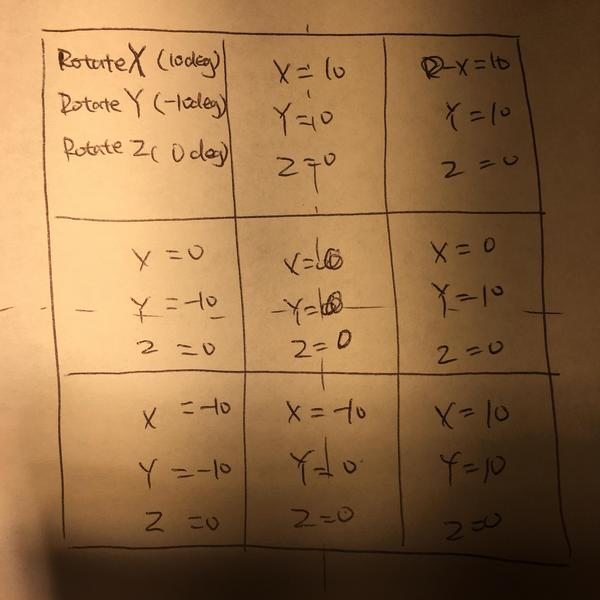 RotateX (10deg)
RotateY (-10deg)
RotateZ( 0deg)
X=10
Y=10
Z=0
X=10
Y=10
Z=0
X=0
Y=-10
Z=0
X=
Y=
Z=0
X=0
Y=10
Z=0
X=-10
Y=-10
Z=0
X=-10
Y=0
Z=0
X=10
Y=10
Z=0